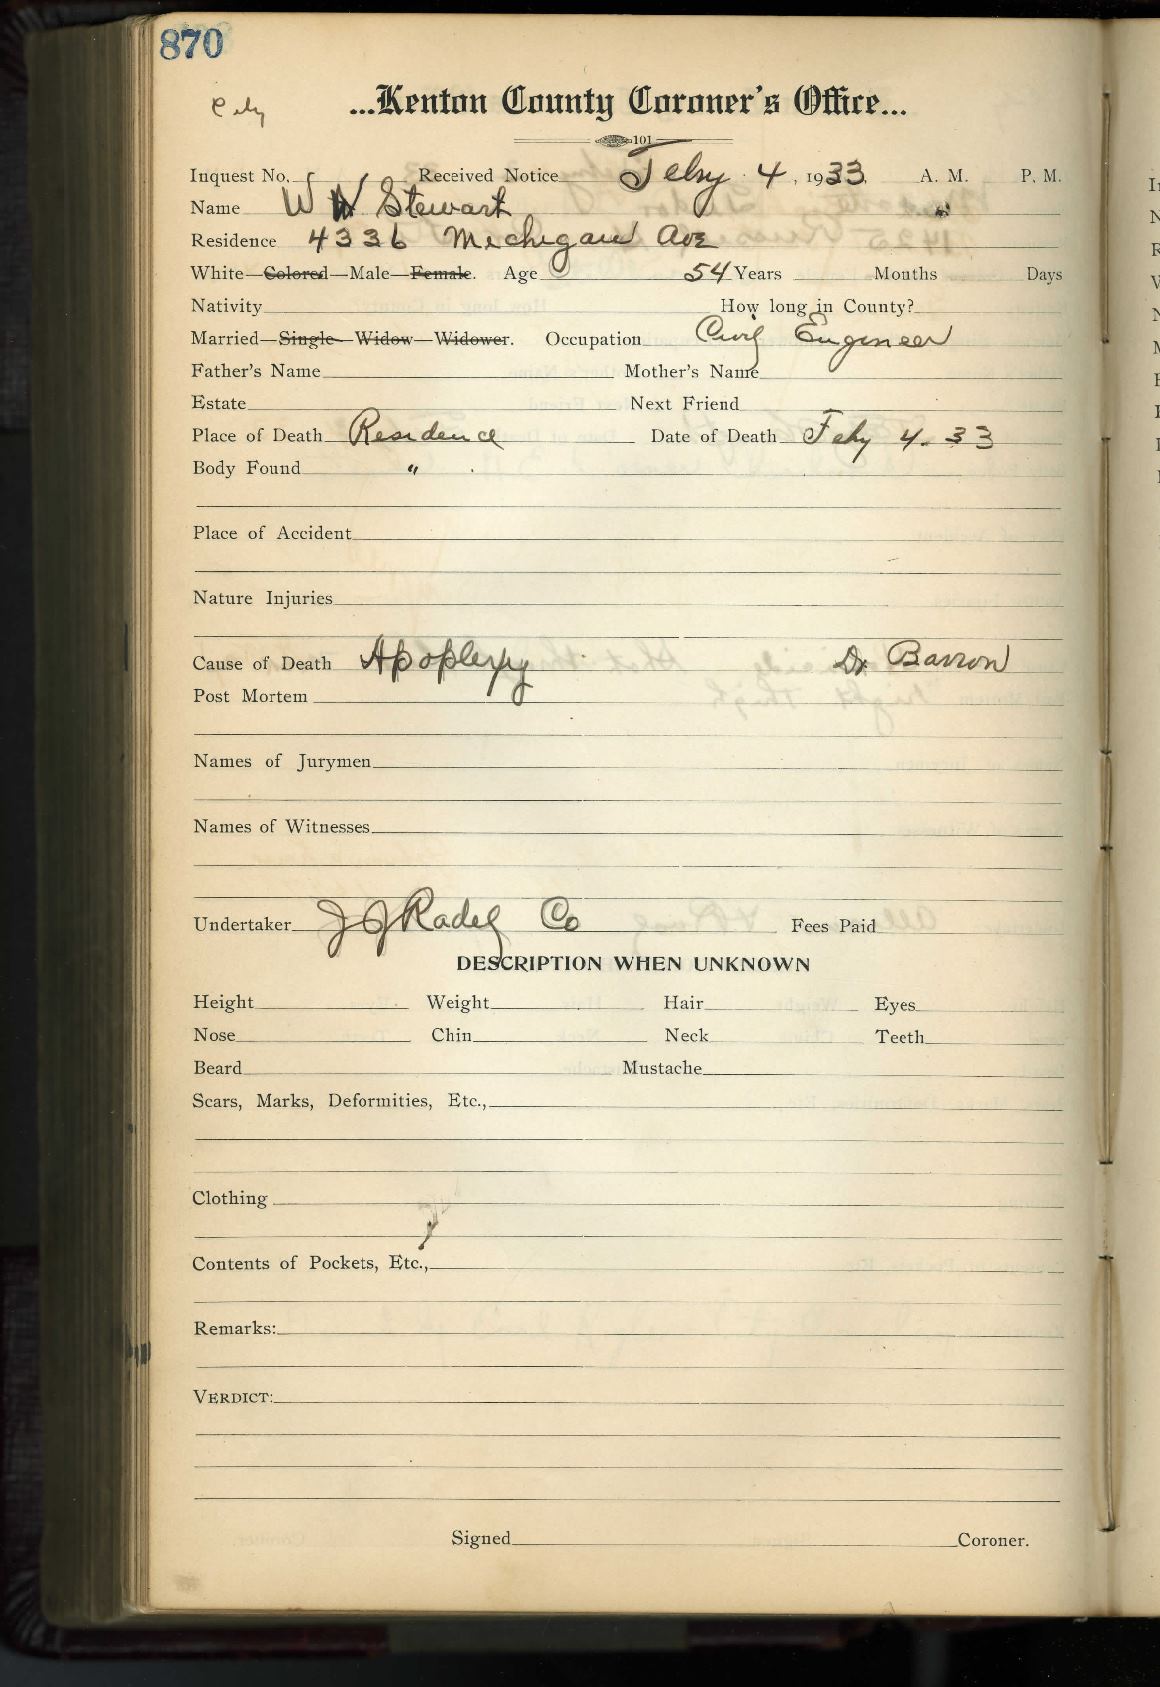 870
City
...Kenton County Coroner's Office...
101
Inquest No. Received Notice Feby 4, 1933 A. M. P. M.
Name W W Stewart
Residence 4336 Michigan Ave
White—Colored—Male—Female. Age 54 Years Months Days
Nativity How long in County?
Married—Single—Widow—Widower. Occupation Civil Engineer
Father's Name Mother's Name
Estate Next Friend
Place of Death Residence Date of Death Feby 4. 33
Body Found "
Place of Accident
Nature Injuries
Cause of Death Apoplexy Dr Barron
Post Mortem
Names of Jurymen
Names of Witnesses
Undertaker J J Radel Co Fees Paid
DESCRIPTION WHEN UNKNOWN
Height Weight Hair Eyes
Nose Chin Neck Teeth
Beard Mustache
Scars, Marks, Deformities, Etc.,
Clothing
Contents of Pockets, Etc.,
Remarks:
VERDICT:
Signed Coroner.